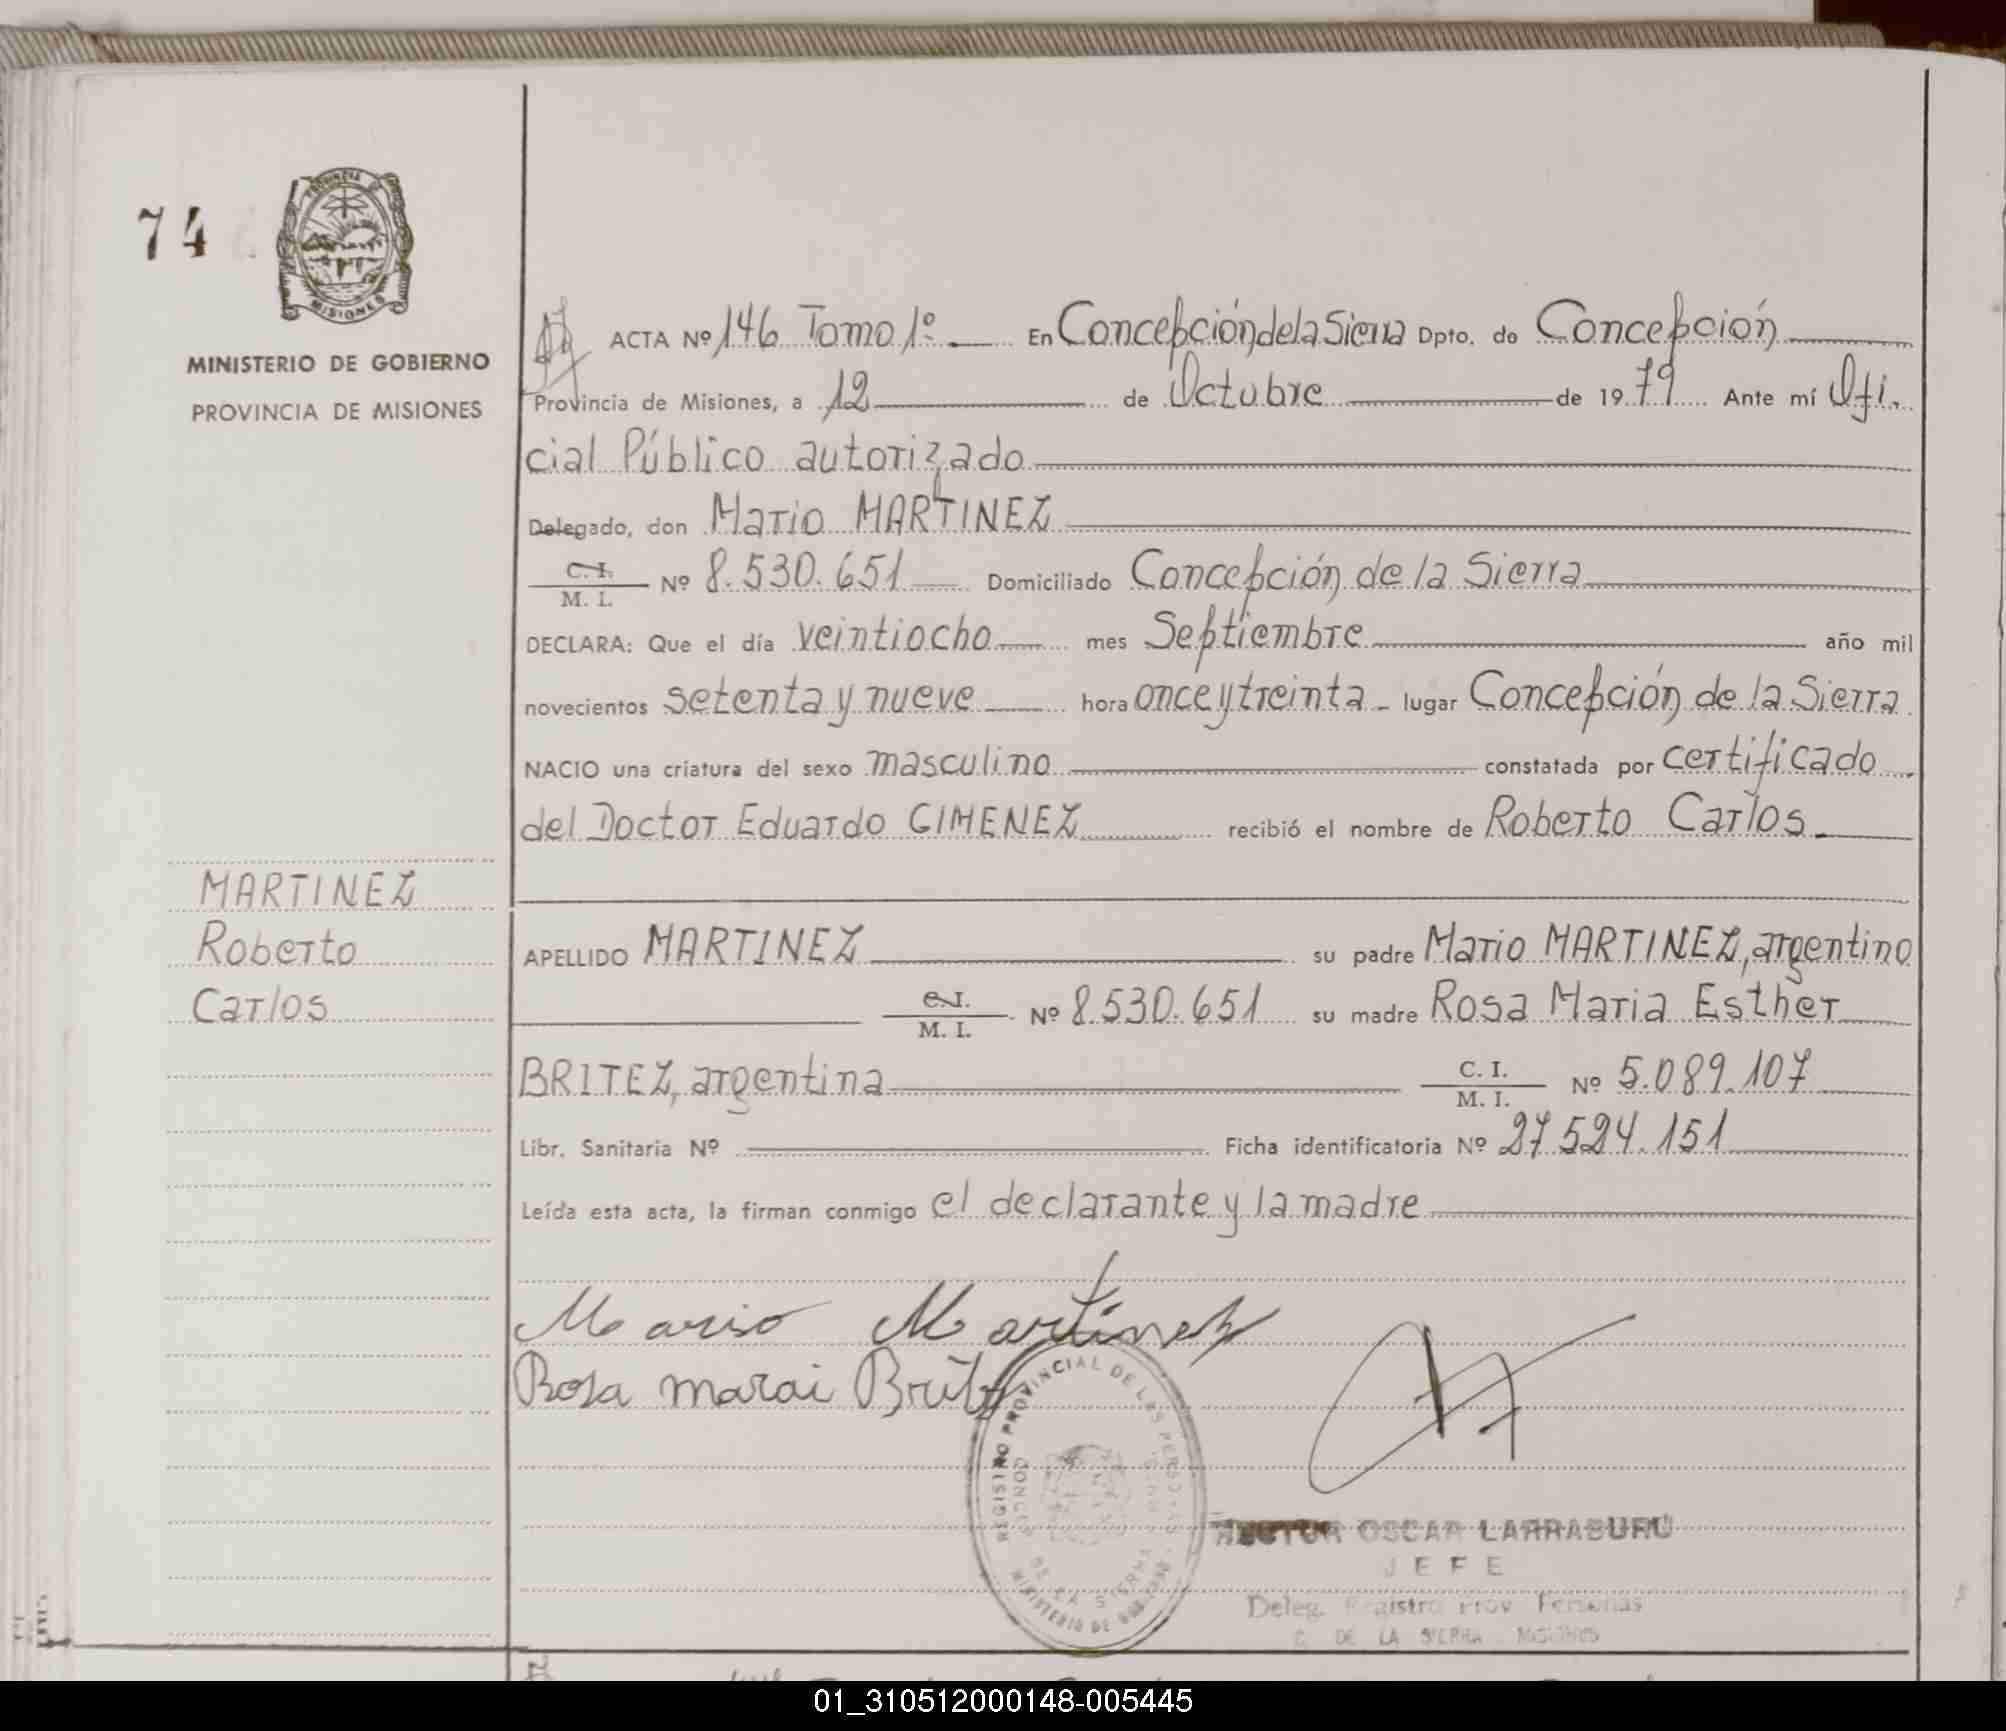 74
PROVINCIA DE
MISIONES
MINISTERIO DE GOBIERNO
PROVINCIA DE MISIONES
MARTINEZ
Roberto
Carlos
ACTA Nº 146 Tomo 1º En Concepción de la Sierra Dpto. de Concepción
Provincia de Misiones, a 12 de Octubre de 1979 Ante mí Ofi.
cial Público autorizado
Delegado, don Mario MARTINEZ
C. I.
M. I. Nº 8.530.651 Domiciliado Concepción de la Sierra
DECLARA: Que el día veintiocho mes Septiembre año mil
novecientos setenta y nueve hora once y treinta lugar Concepción de la Sierra
NACIO una criatura del sexo masculino constatada por certificado
del Doctor Eduardo GIMENEZ recibió el nombre de Roberto Carlos
APELLIDO MARTINEZ su padre Mario MARTINEZ, argentino
C.I.
M. I. Nº 8.530.651 su madre Rosa Maria Esther
BRITEZ, argentina C. I.
M. I. Nº 5.089.107
Libr. Sanitaria Nº Ficha identificatoria Nº 27.524.151
Leída esta acta, la firman conmigo el declarante y la madre
Mario Martinez
Rosa marai Britez
REGISTRO PROVINCIAL DE LAS PERSONAS
CONC. DE LA SIERRA
MINISTERIO DE GOBIERNO
HECTOR OSCAR LARRABURU
JEFE
Deleg. Registro Prov Personas
C. DE LA SIERRA MISIONES
01_310512000148-005445